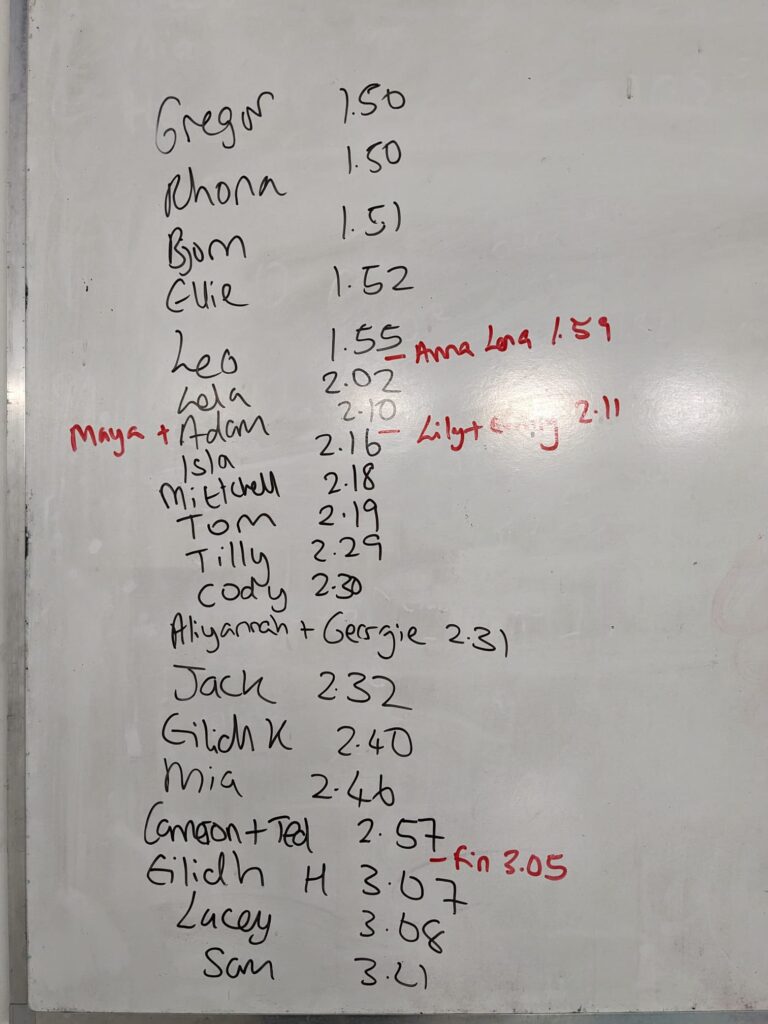 Gregor 1.50
Rhona 1.50
Bjorn 1.51
Ellie 1.52
Leo 1.55
- Anna Lena 1.59
Lola 2.02
Maya + Adam 2.10
- Lily + 2.11
Isla 2.16
Mittchell 2.18
Tom 2.19
Tilly 2.29
Cody 2.30
Aliyannah + Georgie 2.31
Jack 2.32
Eilidh K 2.40
Mia 2.46
Cameron + Ted 2.57
- Fin 3.05
Eilidh H 3.07
Lacey 3.08
Sam 3.21